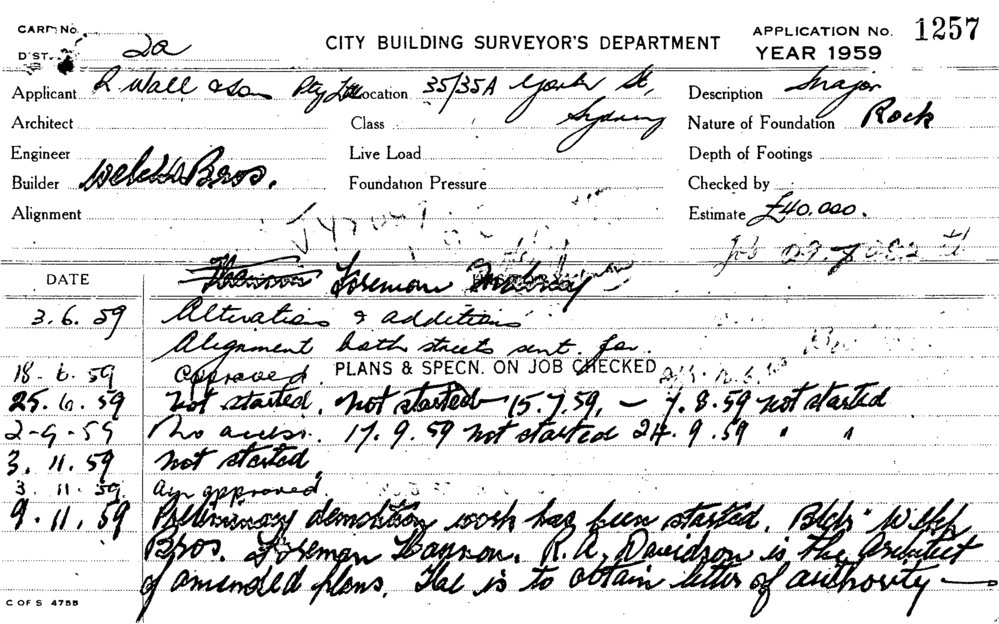 CARD No.
DIST. 2a
CITY BUILDING SURVEYOR'S DEPARTMENT
APPLICATION No. 1257
YEAR 1959
Applicant R Wall & Son Pty Ltd
Location 35/35A York St,
Sydney
Description Major
Architect
Class
Nature of Foundation Rock
Engineer
Live Load
Depth of Footings
Builder Welch Bros.
Foundation Pressure
Checked by
Alignment
Estimate £40.000.
DATE
Hannon Foreman
3.6.59 Alterations & additions
Alignment both streets sent for.
18.6.59 approved PLANS & SPECN. ON JOB CHECKED
25.6.59 Not started. Not started 15.7.59. — 7.8.59 Not started
2-9-59 No access. 17.9.59 Not started 24.9.59 " "
3.11.59 Not started.
3.11.59 approved
9.11.59 Preliminary demolition work has been started. Bldr Welch
Bros. Foreman Hannon. R.A. Davidson is the architect
of amended plans. He is to obtain letter of authority —
C OF S 4755